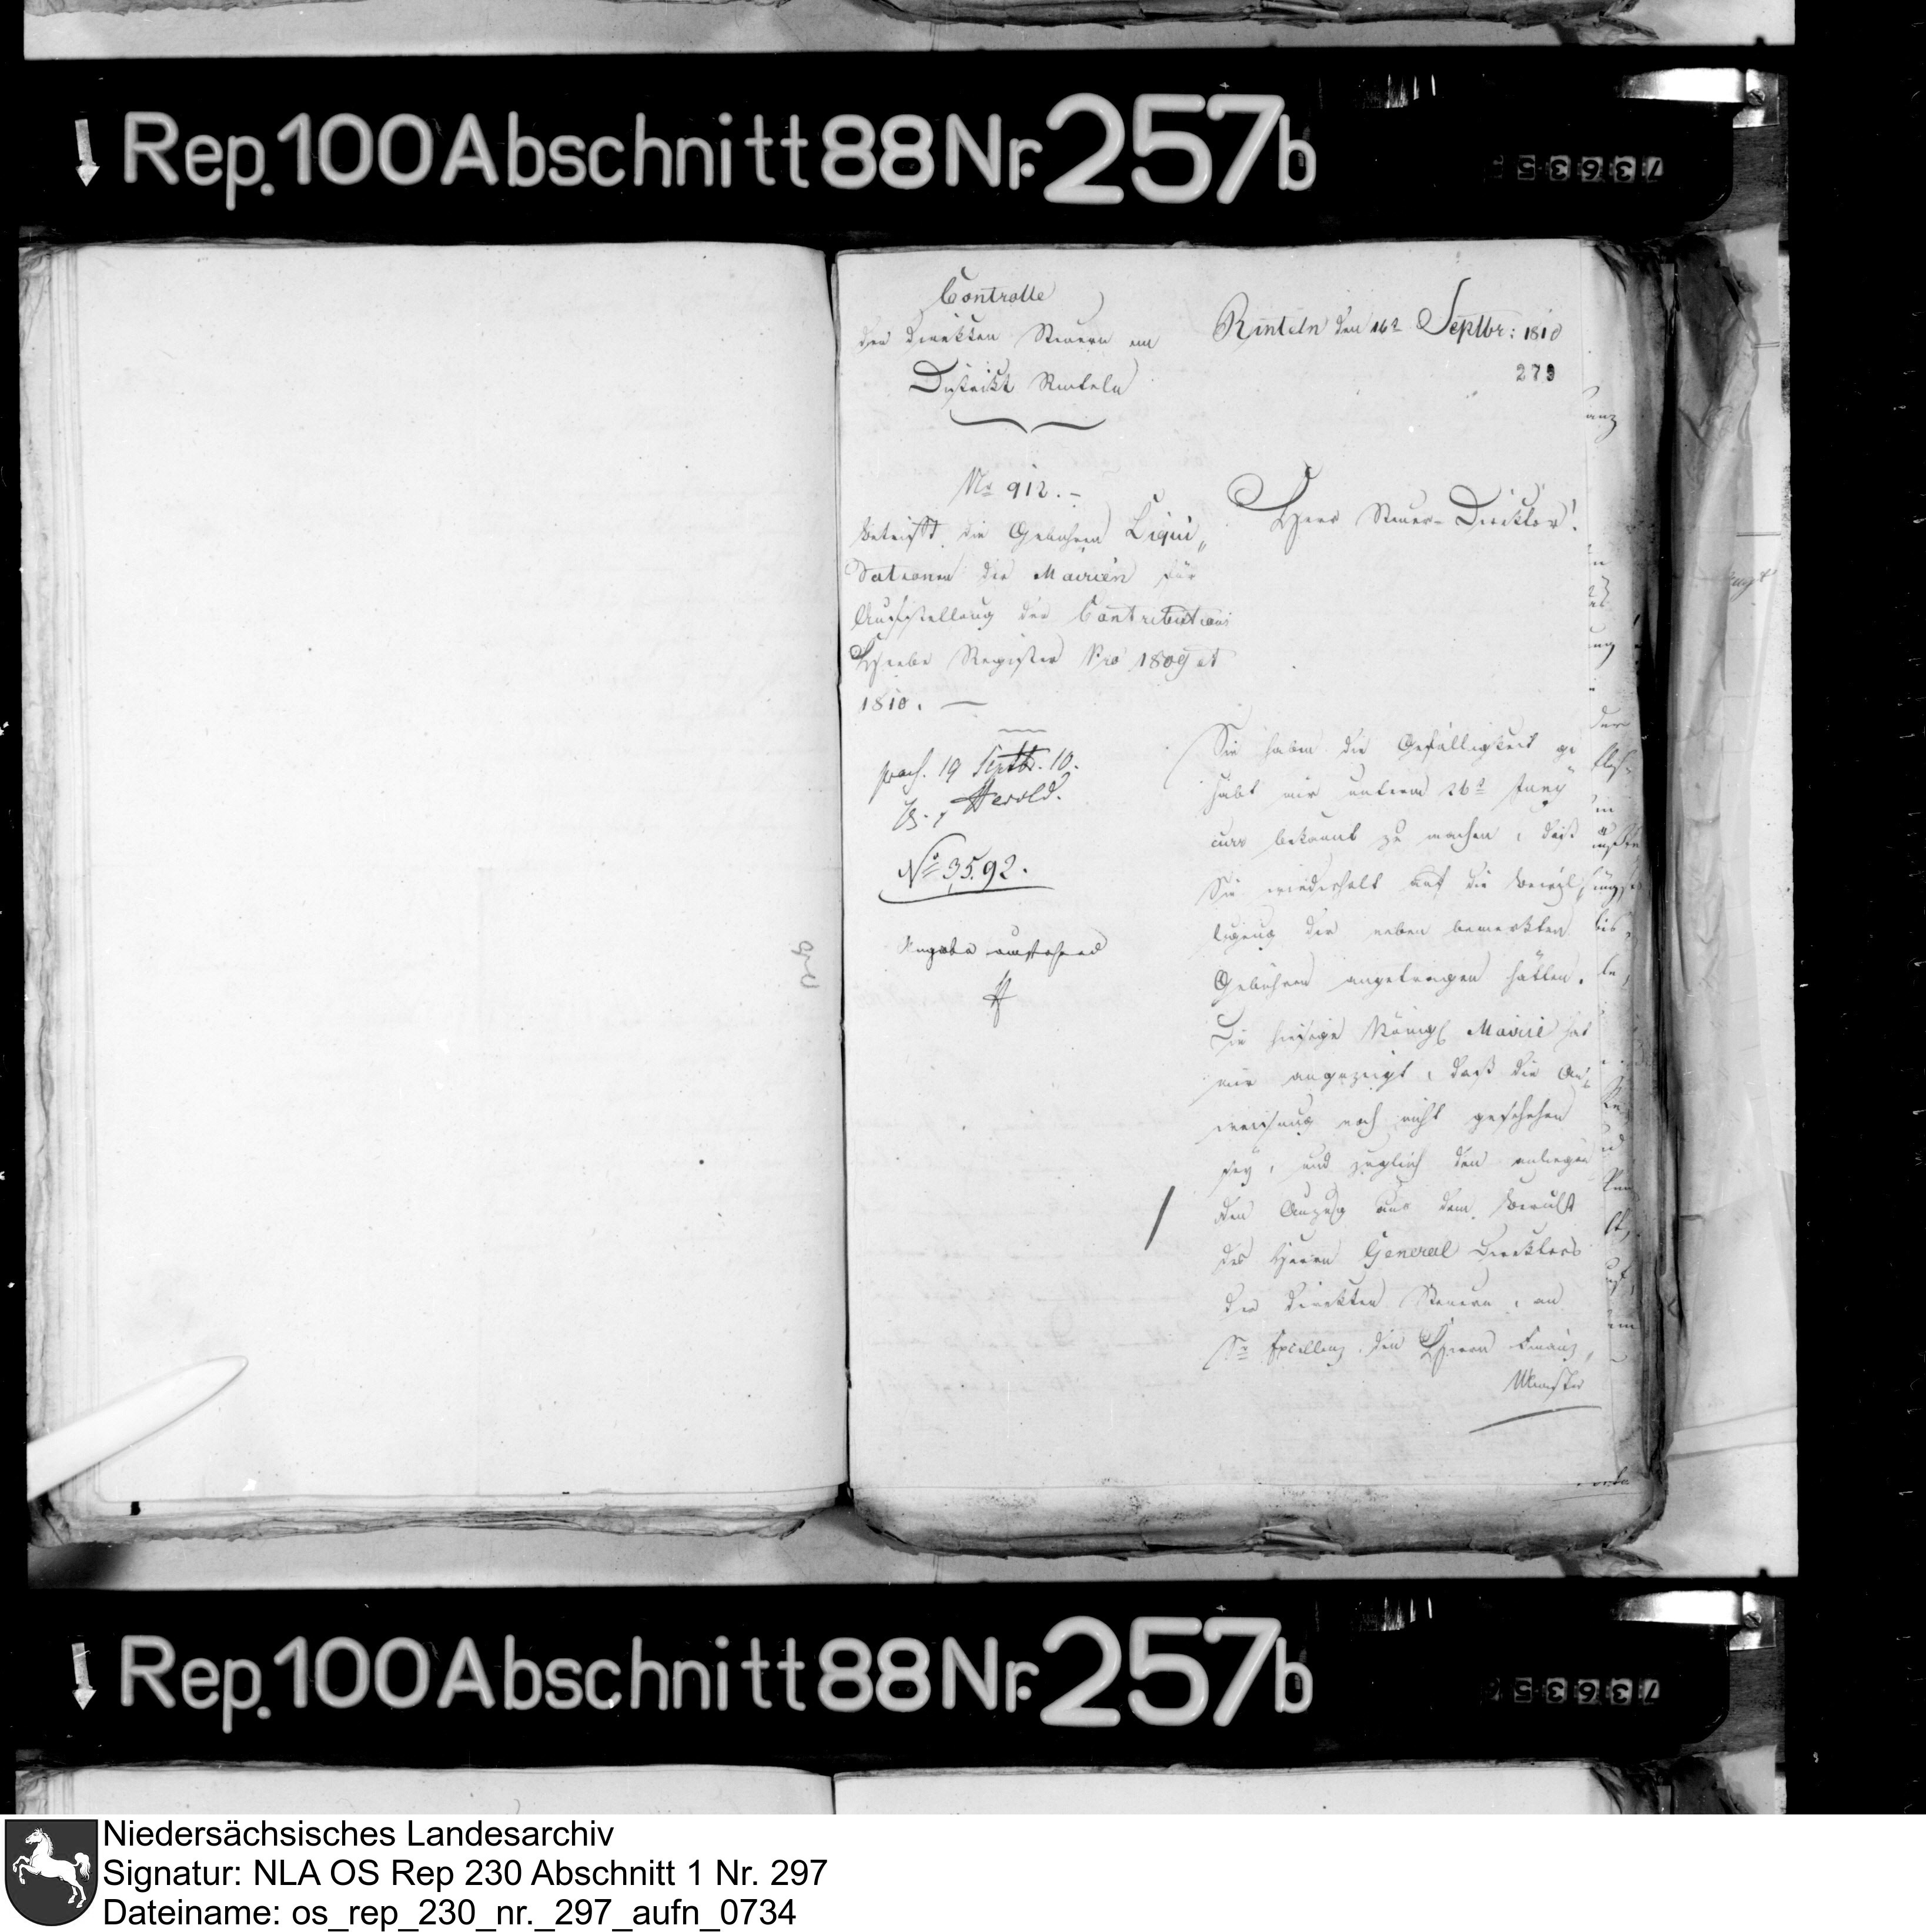 Rep. 100 Abschnitt 88 Nr. 257b
73635
Controlle
der direkten Steuern im
Distrikt Rinteln
Rinteln den 16ⁿ Septbr: 1810
273
No 912. –
Betrifft die Gebühren Liqui„
dationen der Mairien für
Aufstellung der Contributions
Hebe Register pro 1809 et
1810. —
Herr Steuer-Direktor!
19 Septbr. 10.
Herold.
No 3592.
Sie haben die Gefälligkeit ge
habt mir unterm 26ⁿ Juny
curr bekannt zu machen, daß
Sie wiederholt auf die Bewil
ligung der neben bemerkten
Gebühren angetragen hätten.
Die hiesige Königl Mairie hat
mir angezeigt, daß die An„
weisung noch nicht geschehen
sey, und zugleich den anliegen
den Auszug aus dem Bericht
des Herrn General Direktors
der direkten Steuern, an
Sr Excellenz den Herrn Finanz„
Minister
Rep. 100 Abschnitt 88 Nr. 257b
73635
Niedersächsisches Landesarchiv
Signatur: NLA OS Rep 230 Abschnitt 1 Nr. 297
Dateiname: os_rep_230_nr._297_aufn_0734